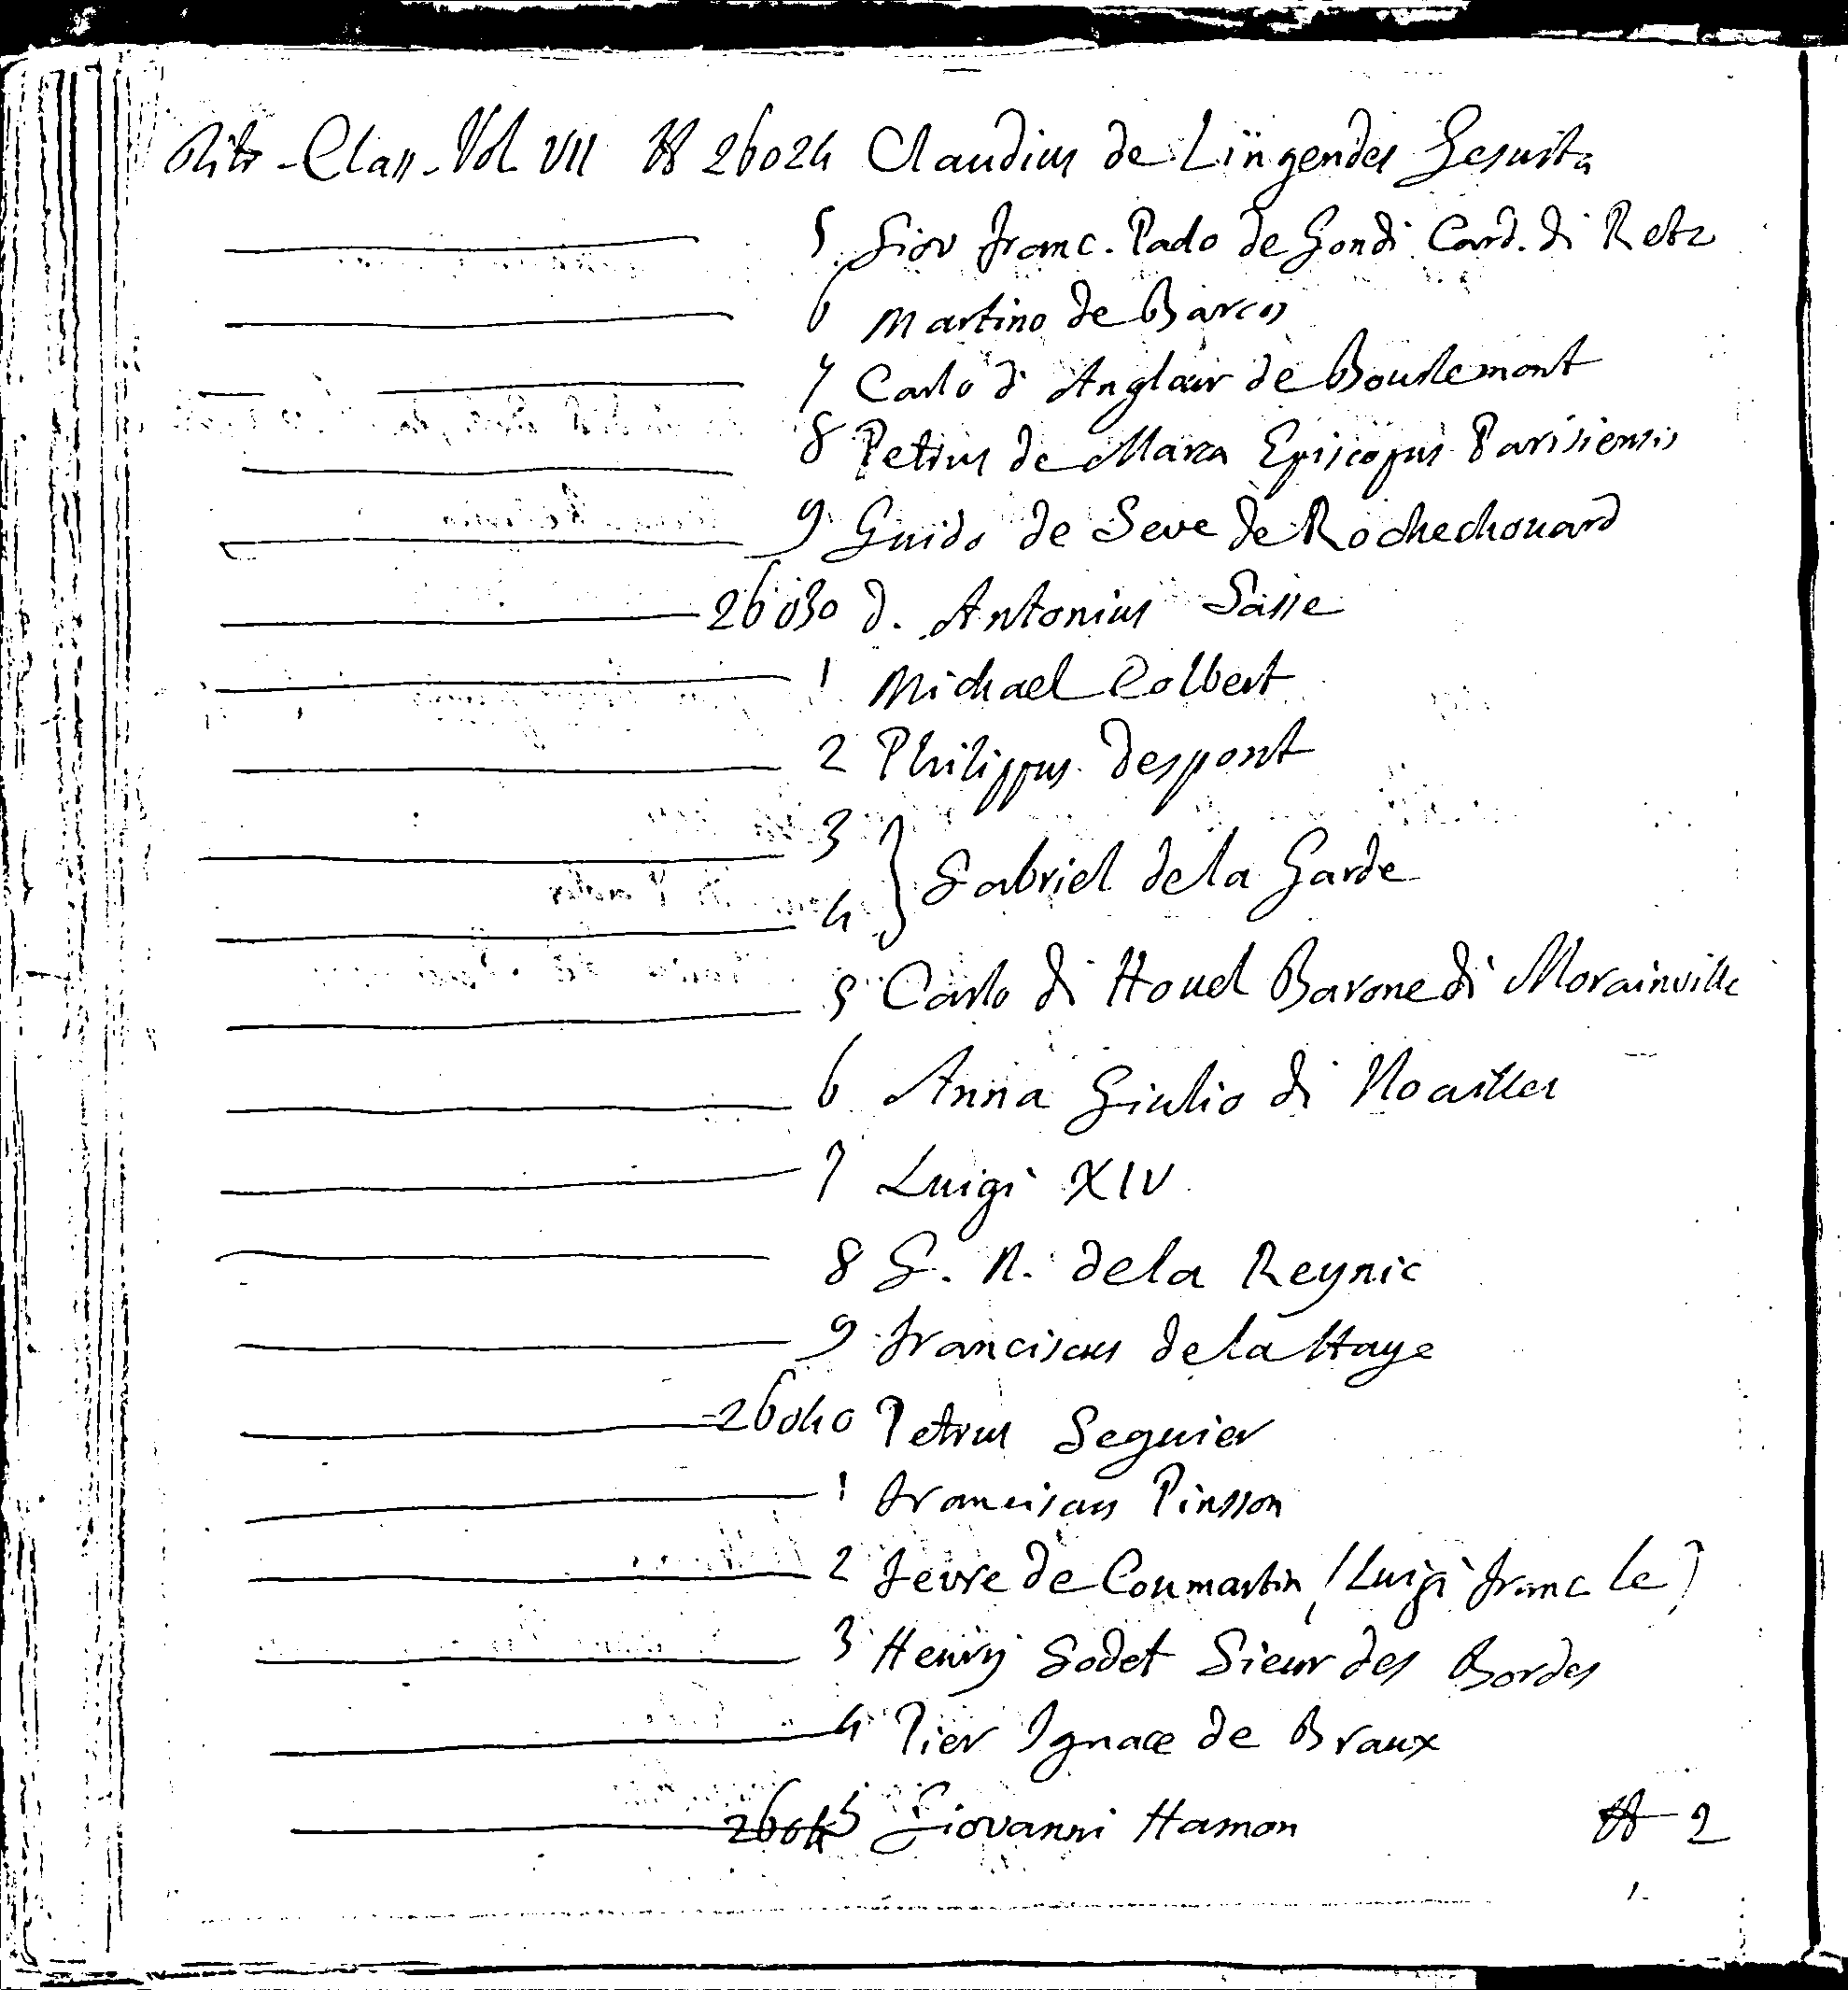 Ritr - Class. Vol VII N 26024 Claudius de Lingendes Gesuita
5 Giov franc. Paolo de Gondi Card. di Retz
6 Martino de Barcos
7 Carlo d' Anglour de Bourlemont
8 Petrus de Marca Episcopus Parisiensis
9 Guido de Seve de Rochechouard
26030 D. Antonius Sasse
1 Michael Colbert
2 Philippus Despont
3
} Gabriel de la Garde
4
5 Carlo di Houel Barone di Morainville
6 Anna Giulio di Noailles
7 Luigi XIV
8 G. N. de la Reynie
9 franciscus de la Haye
26040 Petrus Seguier
1 franciscus Pinsson
2 fevre de Coumartin (Luigi franc le)
3 Henry Godet Sieur des Bordes
4 Pier Ignace de Braux
26045 Giovanni Hamon N 2